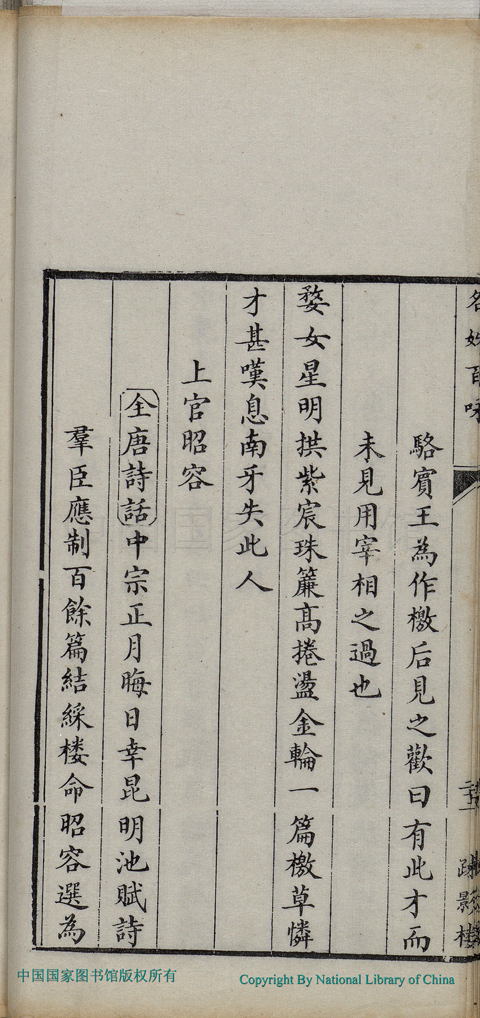 名姝百咏
疎影楼
駱賓王為作檄后見之歎曰有此才而
未見用宰相之過也
婺女星明拱紫宸珠簾高捲盪金輪一篇檄草憐
才甚嘆息南牙失此人
上官昭容
全唐詩話中宗正月晦日幸昆明池賦詩
羣臣應制百餘篇結綵楼命昭容選為
中国国家图书馆版权所有
Copyright By National Library of China